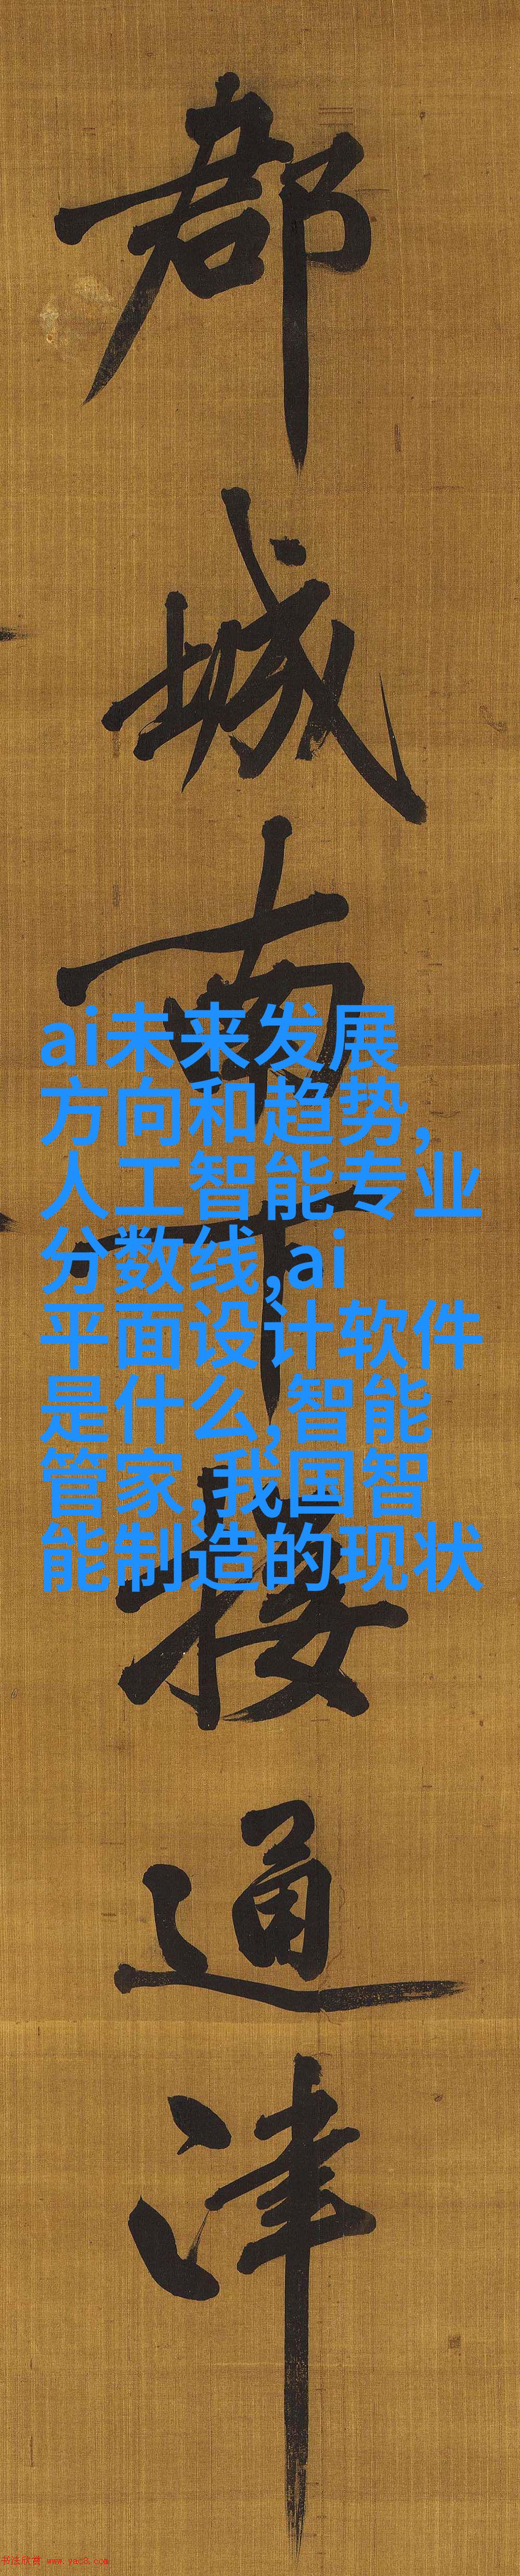 都城南下接通津
ai未来发展
方向和趋势,
人工智能专业
分数线,ai
平面设计软件
是什么,智能
管家,我国智
能制造的现状
书法欣赏 www.yac8.com